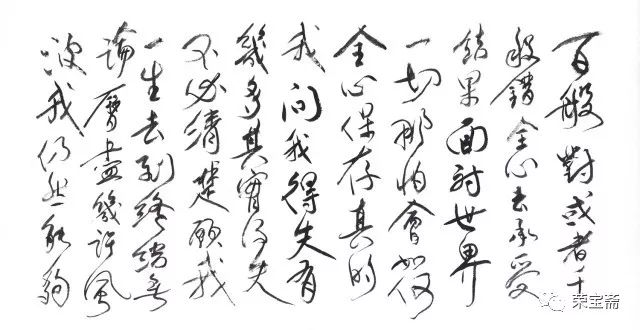 百般對或者千
般錯全心去承受
結果面对世界
一切那怕會如何
全心保存真的
我問我得失有
幾多其實得失
不必清楚願我
一生去到終結無
論曆盡幾許風
波我仍然能夠
荣宝斋